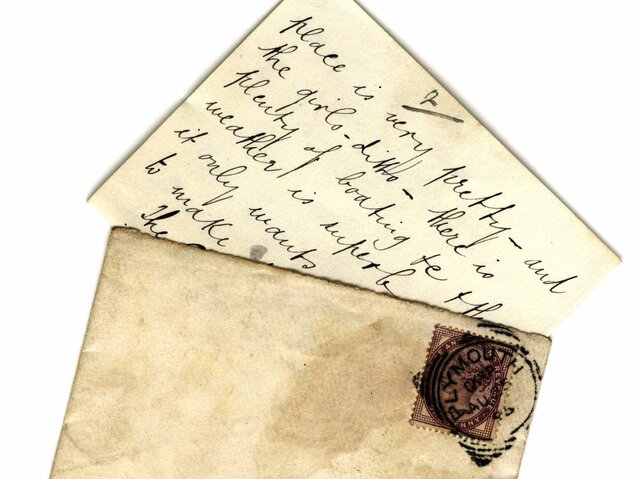 2
place is very pretty – and
the girls – ditto – there is
plenty of boating &c
weather is superb & th
it only wants
to make
The
PLYMOUTH
AU